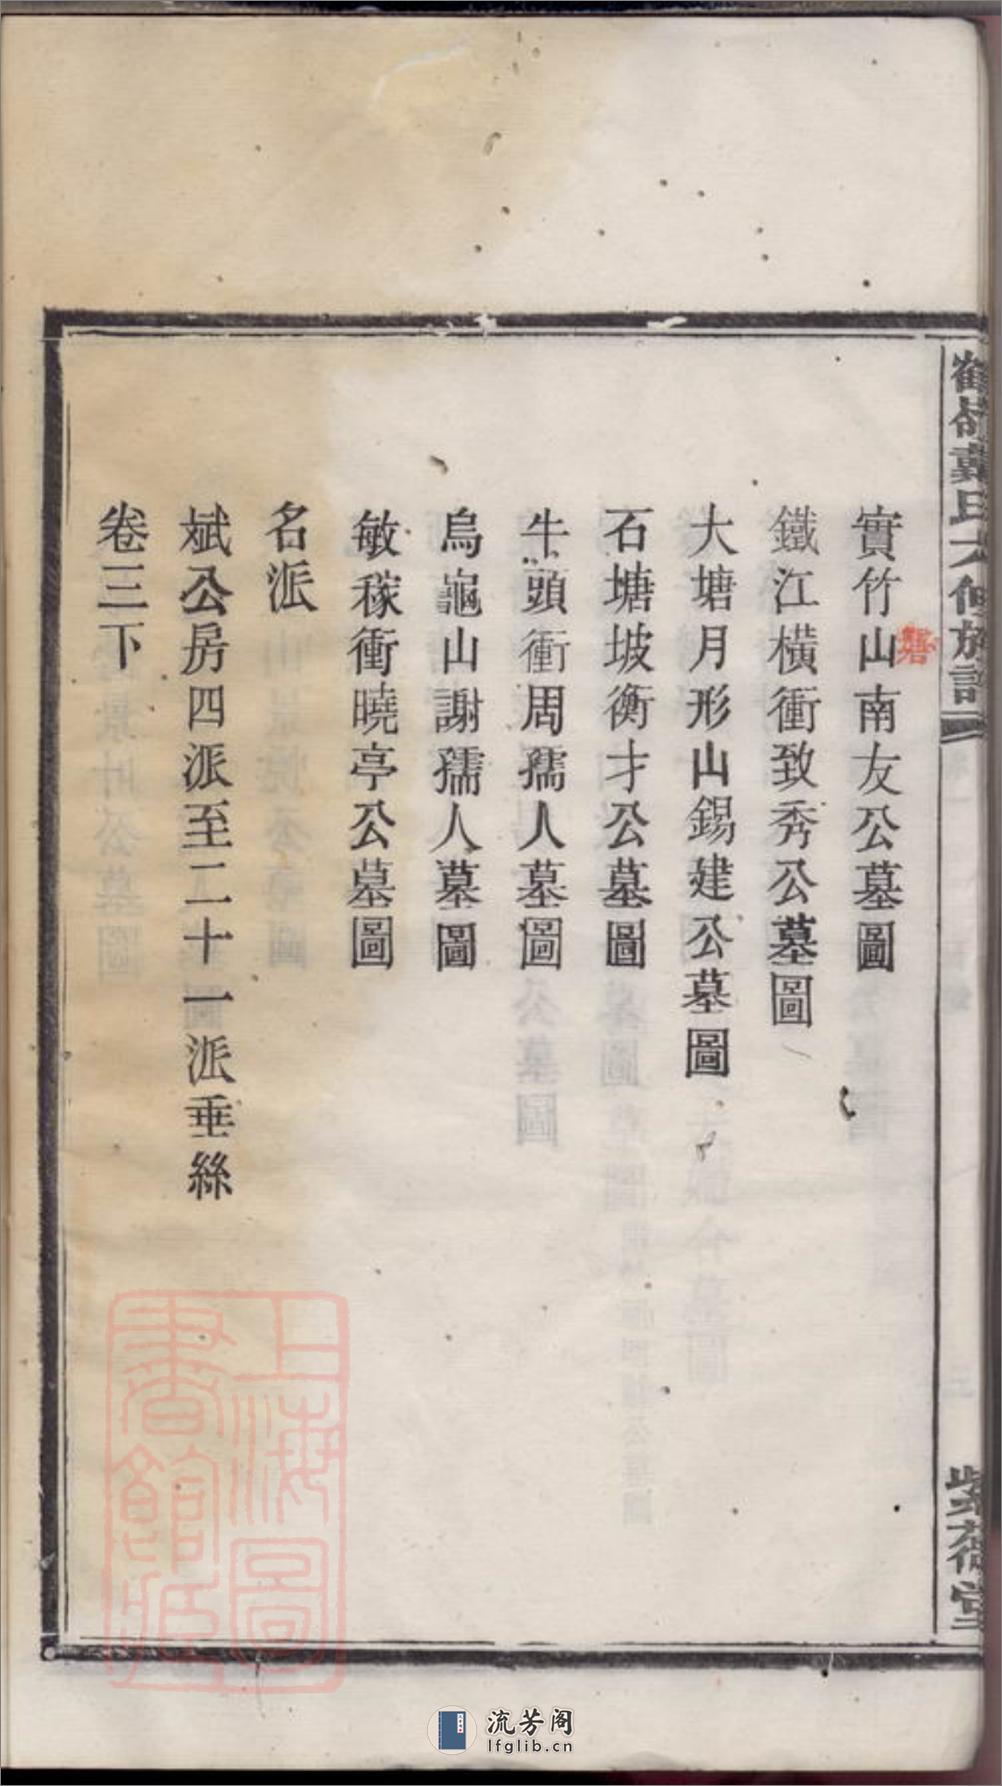 寉嶺戴氏六修族譜
紫薇堂
實竹山南友公墓圖
鐵江橫衝致秀公墓圖
大塘月形山錫建公墓圖
石塘坡衡才公墓圖
牛頭衝周孺人墓圖
烏龜山謝孺人墓圖
敏稼衝曉亭公墓圖
名派
斌公房四派至二十一派垂絲
卷三下
上海圖
書館藏
流芳阁
lfglib.cn